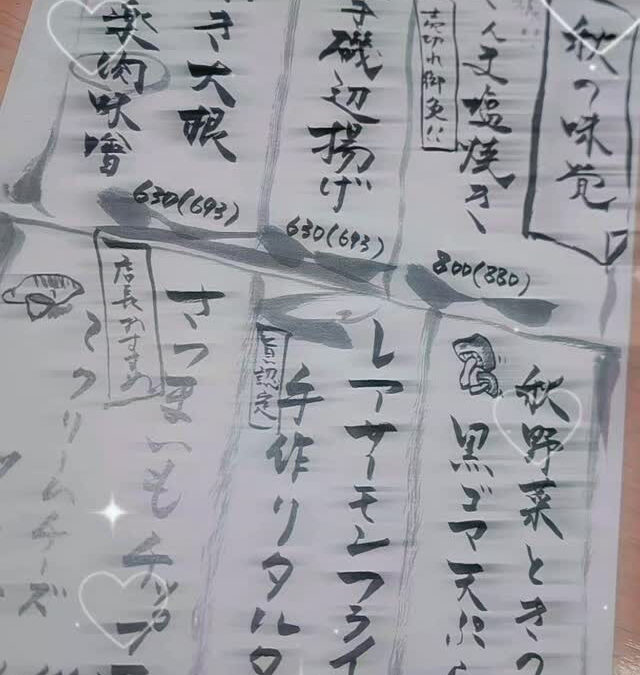 秋の味覚
んま塩焼き
売切れ御免!!
800(880)
磯辺揚げ
630(693)
き大根
肉味噌
630(693)
秋野菜ときの
黒ゴマ天ぷら
レアサーモンフライ
手作りタルタ
さつまいもチップ
店長おすすめ
クリームチーズ